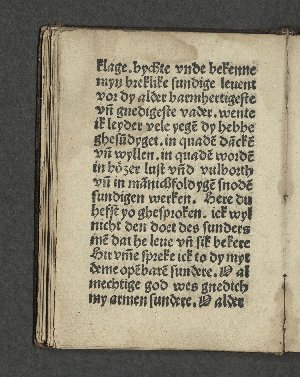 klage. bychte vnde bekenne
myn breklike sundige levent
vor dy alder barmhertigeste
vn̄ gnedigeste vader. wente
ik leyder vele yegē dy hebbe
ghesūdyget. in quadē dāckē
vn̄ wyllen. in quadē wordē
in bözer lust vn̄d vulborth
vn̄ in mānichfoldygē snodē
sundigen werken. Here du
hefst yo ghesproken. ick wyl
nicht den doet des sunders
mē dat he leue vn̄ sik bekere
Hir vm̄e spreke ick to dy myt
deme opēbarē sundere. O al
mechtige god wes gnedich
my armen sundere. O alder